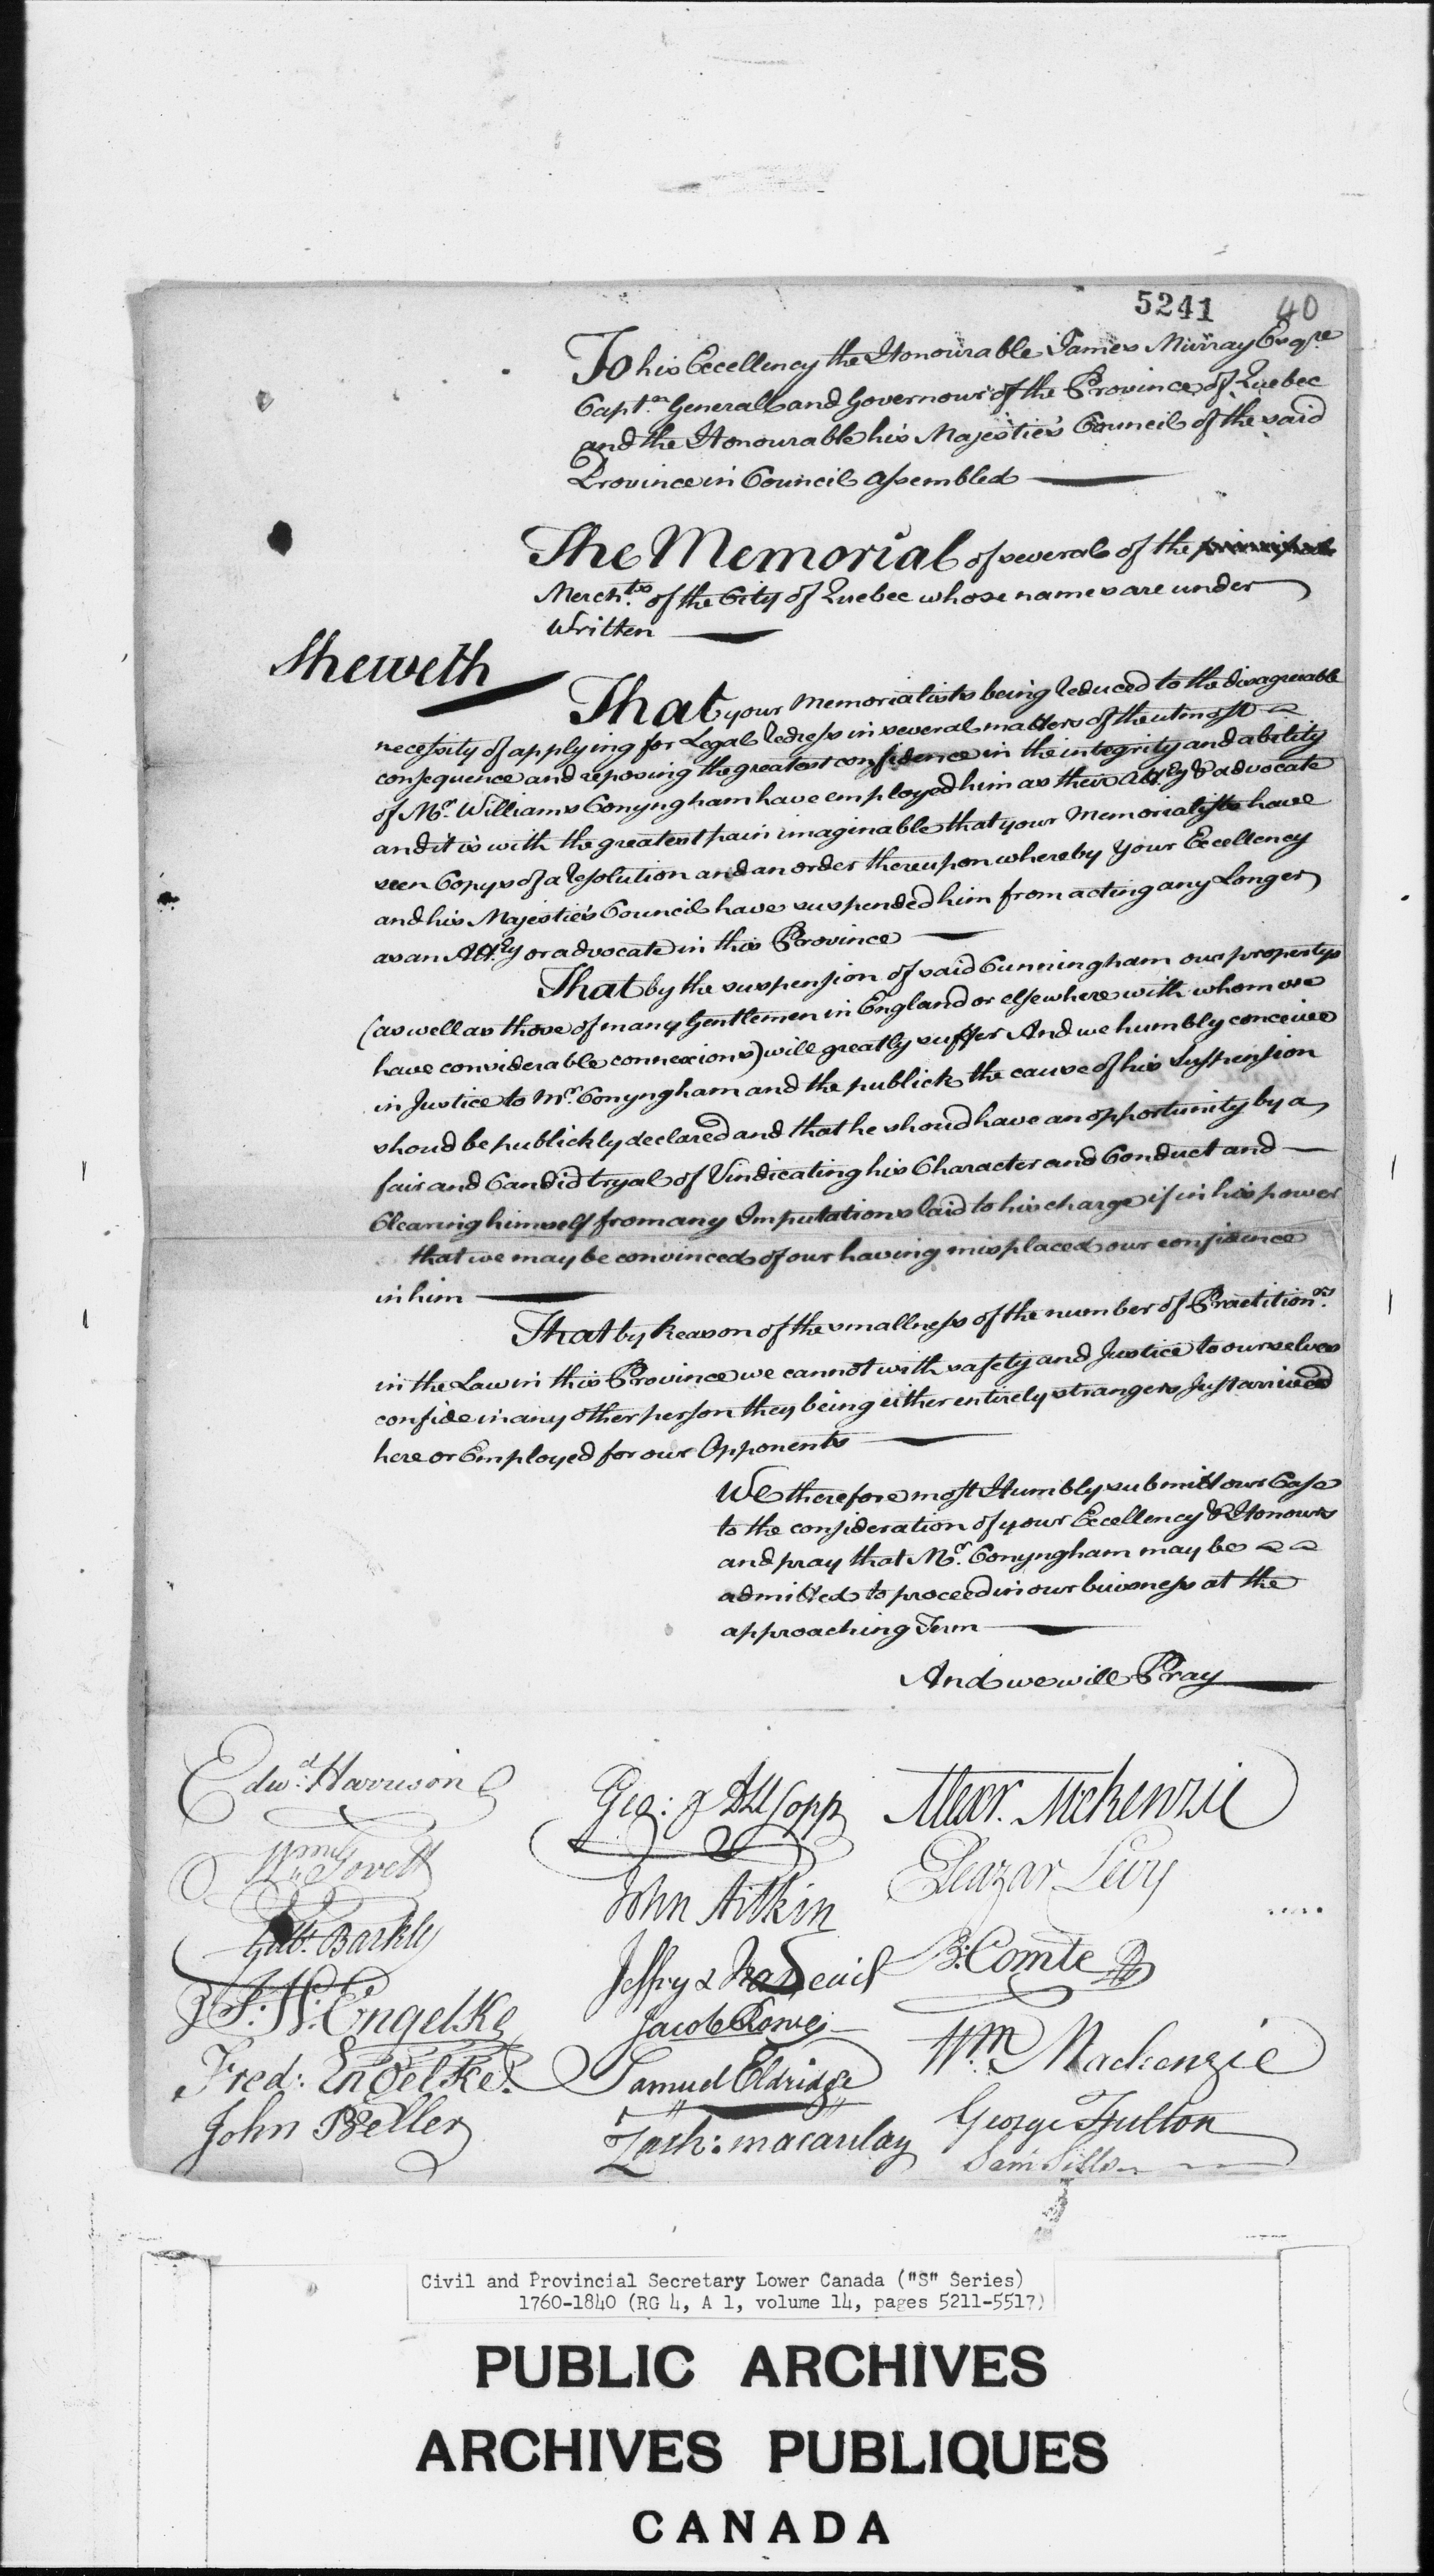 5241 40
To his Excellency the Honourable James Murray Esqre
Captn. General and Governour of the Province of Quebec
and the Honourable his Majestie's Council of the said
Province in Council assembled
The Memorial of several of the principal
Merchts. of the City of Quebec whose names are under
Written
Sheweth
That your Memorialists being reduced to the disagreable
necessity of applying for Legal redress in several matters of the utmost
consequence and reposing the greatest confidence in the integrity and ability
of Mr. Williams Conyngham have employed him as their Attry & advocate
and it is with the greatest pain imaginable that your Memorialists have
seen Copys of a resolution and an order thereupon whereby Your Excellency
and his Majestie's Council have suspended him from acting any Longer
as an Attry. or advocate in this Province
That by the suspension of said Cunningham our propertys
(as well as those of many Gentlemen in England or elsewhere with whom we
have considerable connexions) will greatly suffer And we humbly conceive
in Justice to Mr. Conyngham and the publick the cause of his Suspension
shoud be publickly declared and that he shoud have an opportunity by a
fair and Candid tryal of Vindicating his Character and Conduct and
Clearing himself from any Imputations laid to his charge if in his power
that we may be convinced of our having misplaced our confidence
in him
That by Reason of the smallness of the number of Practitionrs.
in the Law in this Province we cannot with safety and Justice to ourselves
confide in any other person they being either entirely strangers Just arrived
here or Employed for our Opponents
We therefore most Humbly submitt our Case
to the consideration of your Excellency & Honours
and pray that Mr. Conyngham may be
admitted to proceed in our buisness at the
approaching Term
And we will Pray
Edwd. Harrison
Geo: Allsopp
Alexr. McKenzie
Wm. Govett
John Aitkin
Eleazar Levy
Gilbt. Barkly
B: Comte
J. W: Engelke
Jacob Rowe
Wm. Mackenzie
Fred: Engelke
Samuel Eldridge
George Fulton
John Beller
Zach: Macaulay
Sam Sills
Civil and Provincial Secretary Lower Canada ("S" Series)
1760-1840 (RG 4, A 1, volume 14, pages 5211-5517)
PUBLIC ARCHIVES
ARCHIVES PUBLIQUES
CANADA